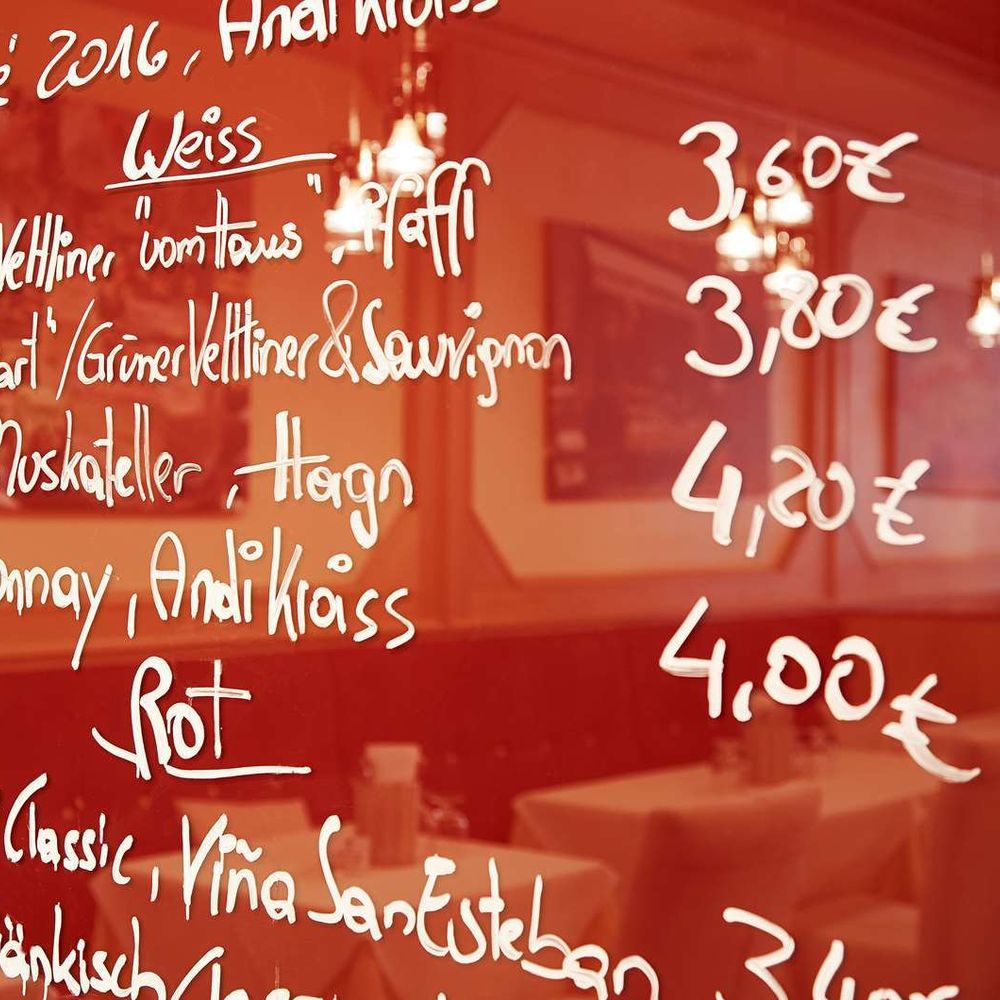 2016, Andi Kroiss
Weiss
Veltliner "vom Haus", Pfaffl 3,60€
art"/Grüner Veltliner & Sauvignon 3,80€
Muskateller, Hagn 4,20€
onnay, Andi Kroiss 4,00€
Rot
Classic, Viña San Esteban
änkisch 3,40